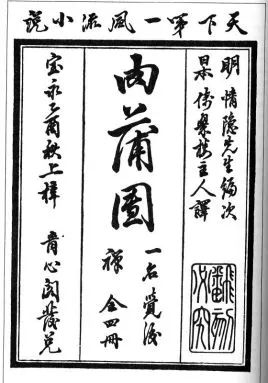 天下第一風流小說
明情隐先生編次
日本倚翠樓主人譯
肉蒲團
一名覺後禪 全四冊
宝永乙酉秋上梓 青心閣發兌
翻刻必究